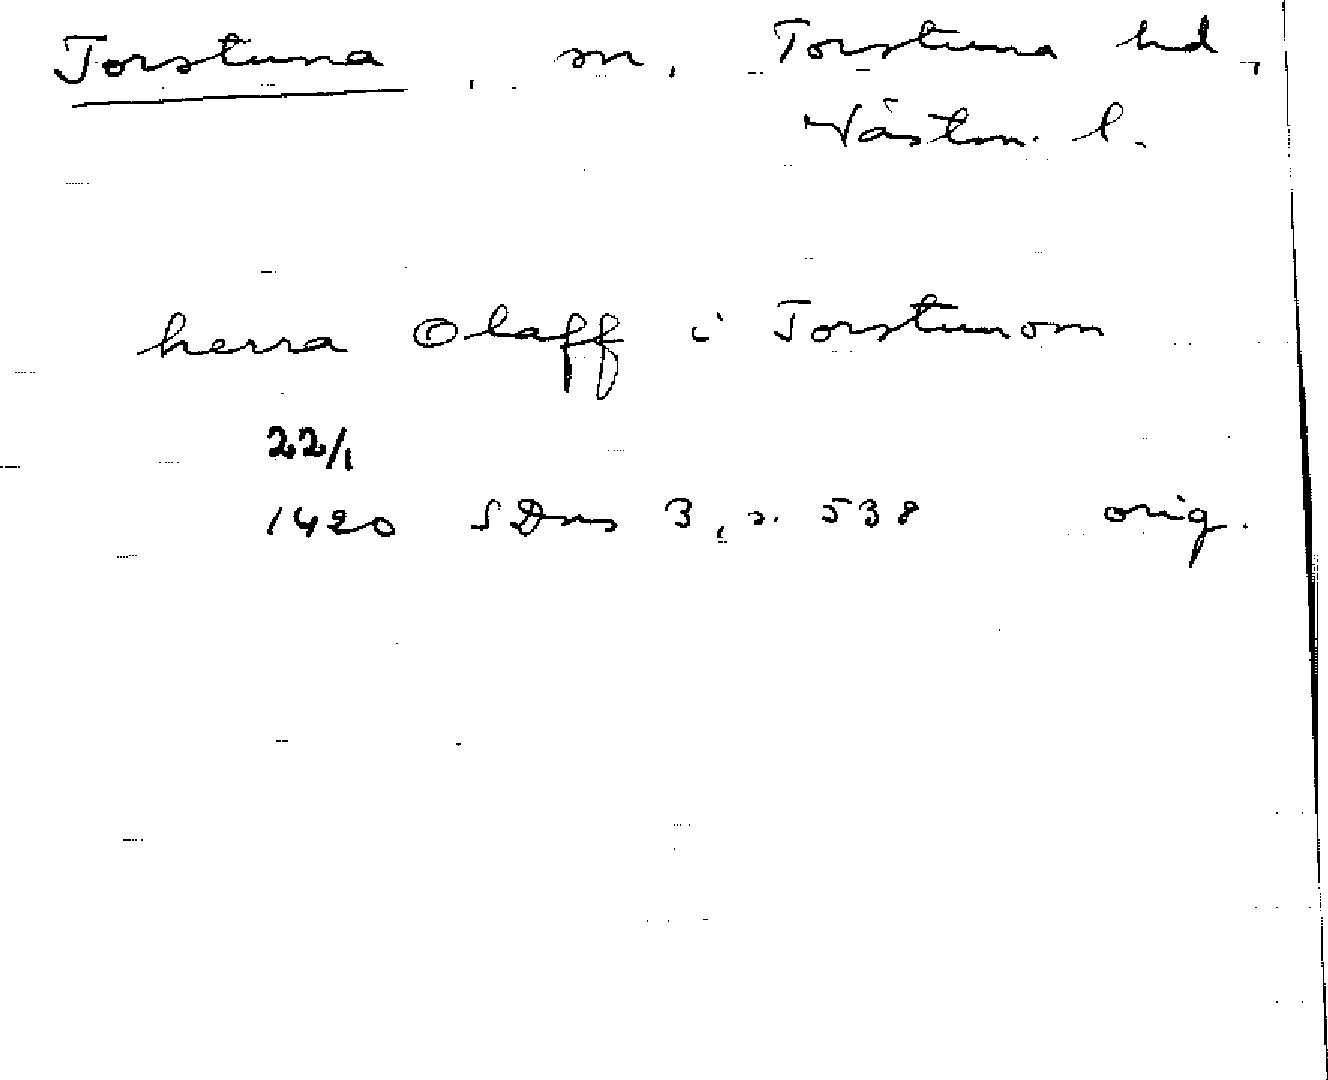 Torstuna, sn, Torstuna hd,
Västm. l.
herra Olaff i Torstunom
22/1
1420 SDns 3, s. 538 orig.